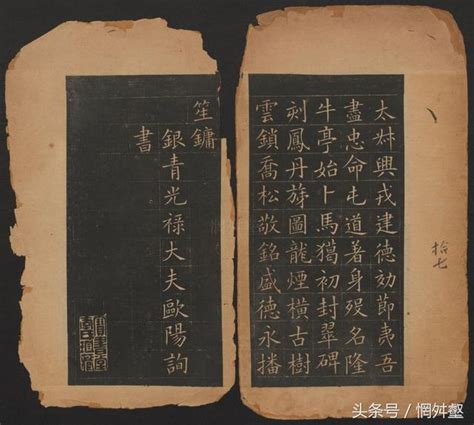 太叔興戎建德効節夷吾
盡忠命屯道著身歿名隆
牛亭始卜馬獵初封翠碑
刻鳳丹旐圖龍煙橫古樹
雲鎖喬松敬銘盛德永播
笙鏞
銀青光祿大夫歐陽詢
書
拾七
头条号／惘舛壑